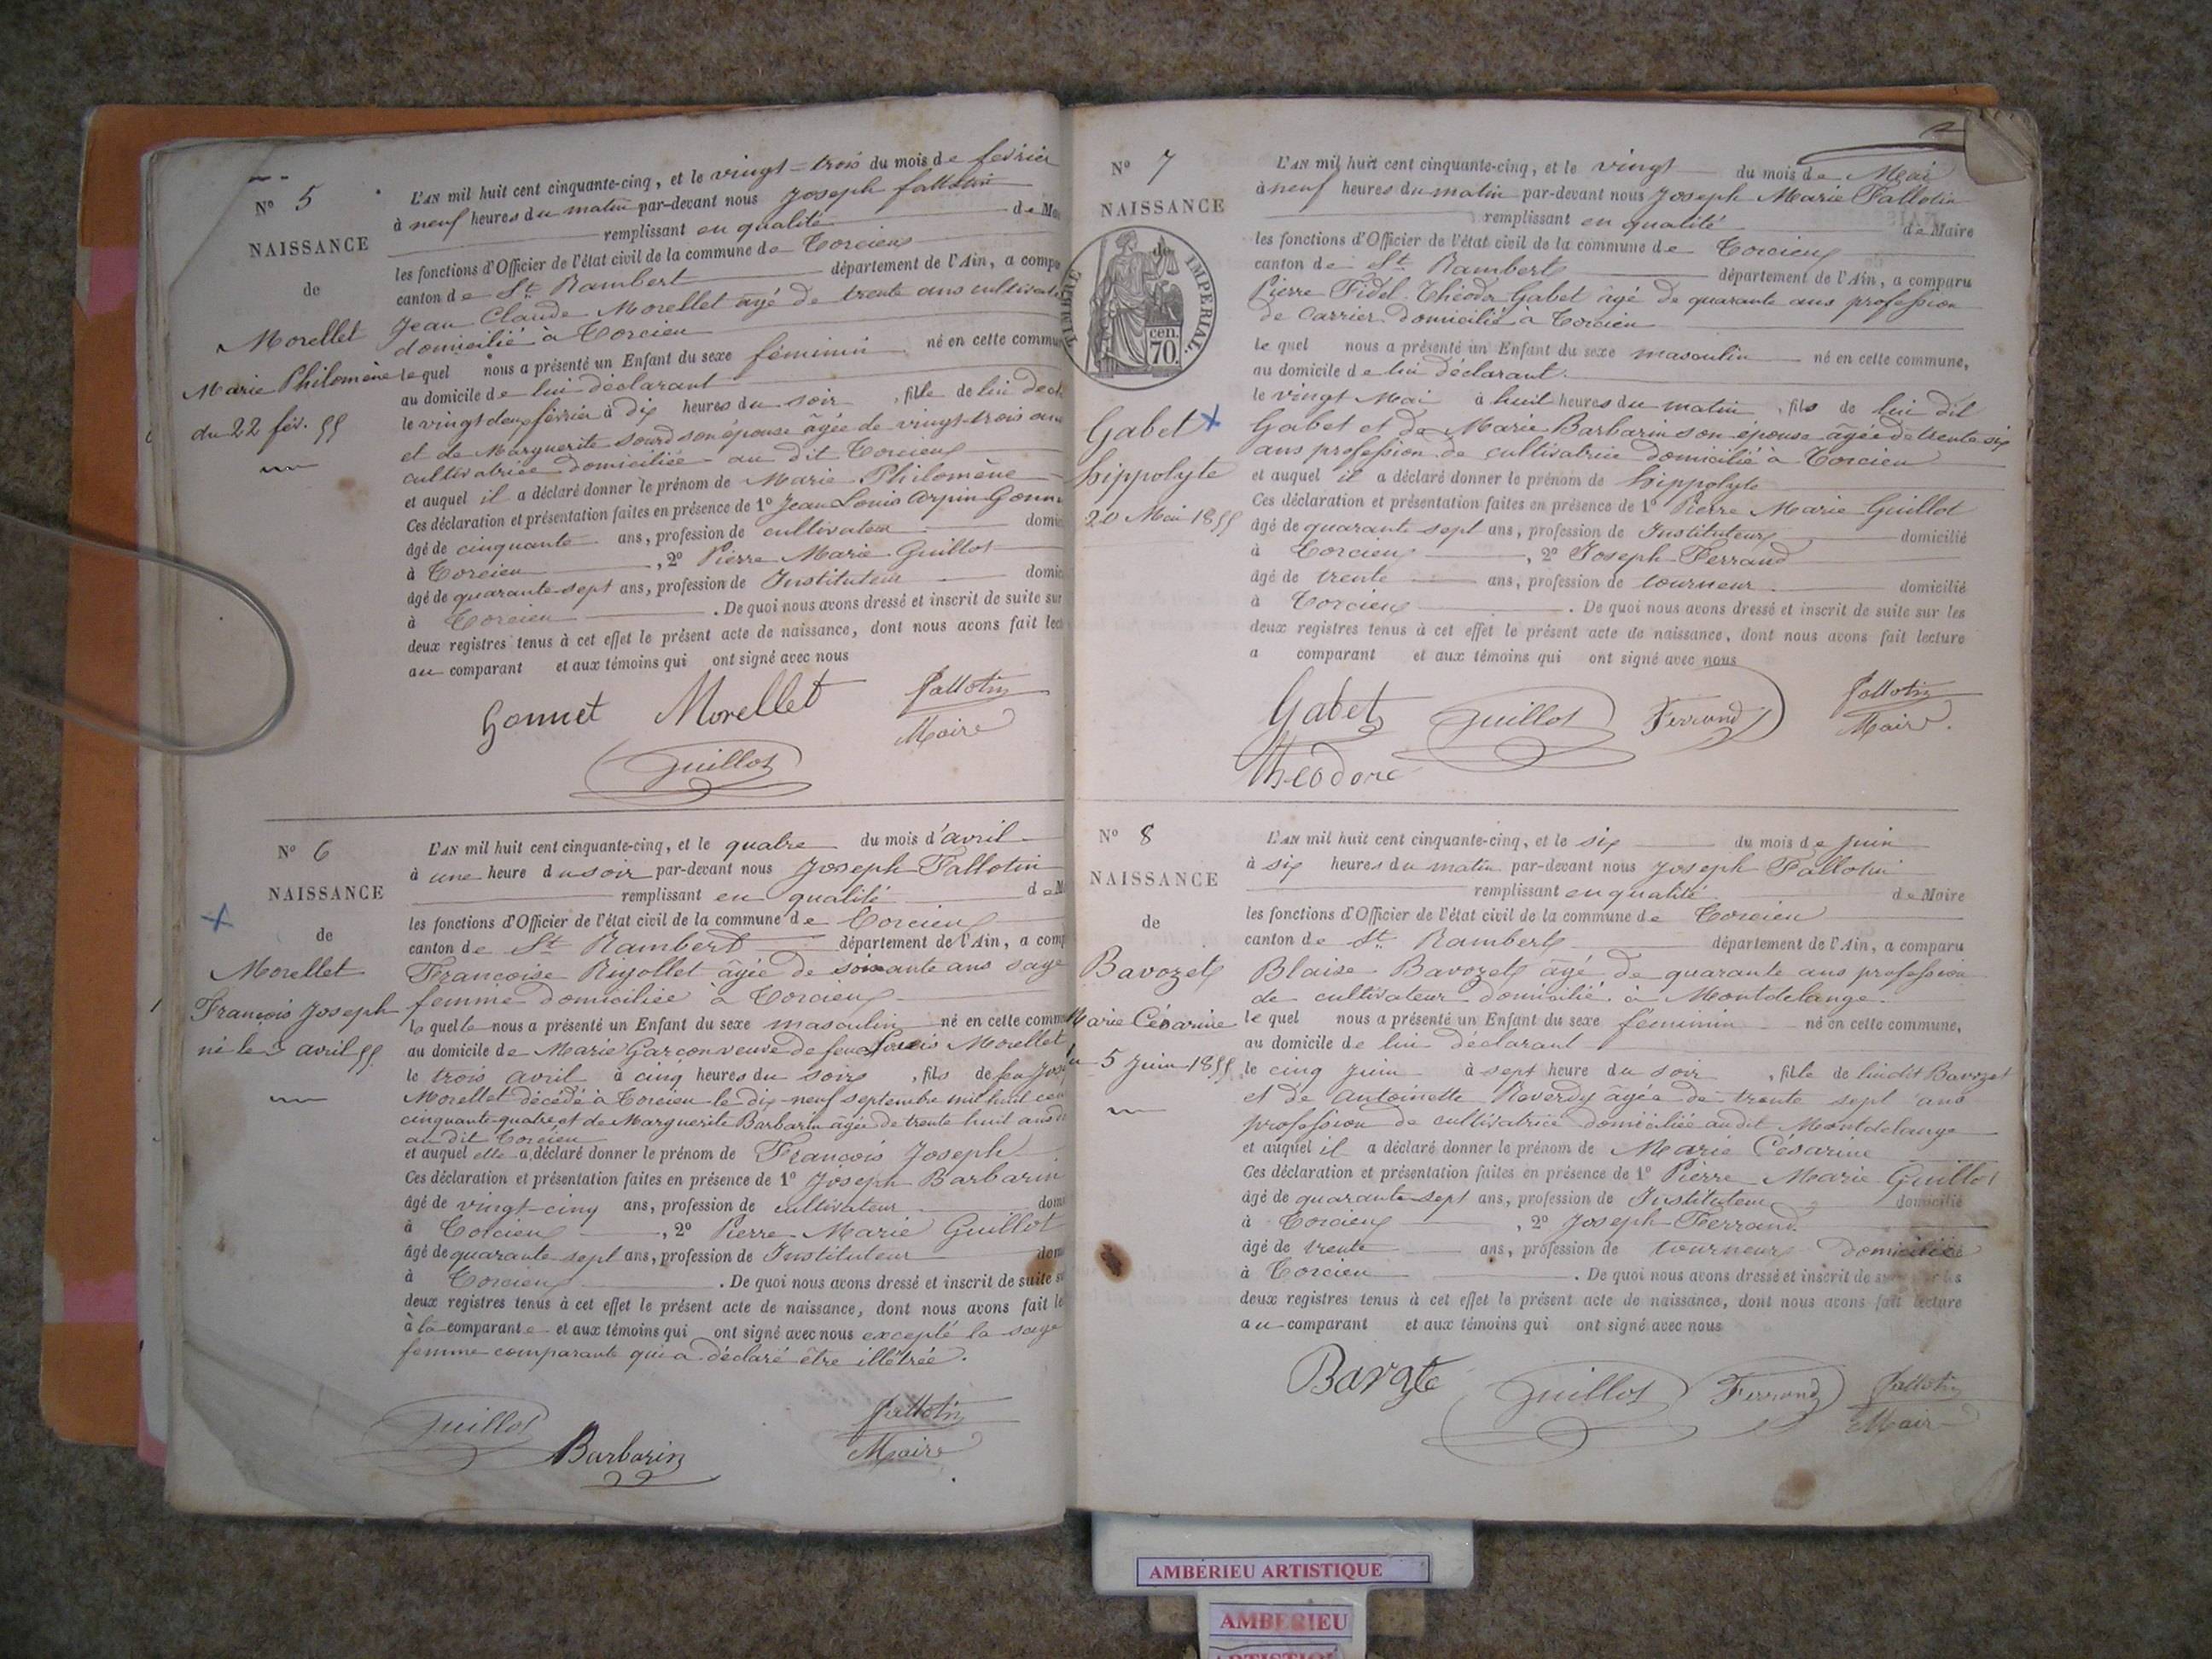 N° 5
NAISSANCE
de
Morellet
Marie Philomène
du 22 fév. 55
L'AN mil huit cent cinquante-cinq, et le vingt=trois du mois de février
à neuf heures du matin par-devant nous Joseph fallotin
remplissant en qualité de
les fonctions d'Officier de l'état civil de la commune de Torcieu
canton de St Rambert département de l'Ain, a
Jean Claude Morellet âgé de trente ans
domicilié à Torcieu
le quel nous a présenté un Enfant du sexe féminin né en cette
au domicile de lui déclarant
le vingt deux février à dix heures du soir, fille de lui
et de Marguerite sourd son épouse âgée de vingt-trois ans
cultivatrice domiciliée au dit Torcieu
et auquel il a déclaré donner le prénom de Marie Philomène
Ces déclaration et présentation faites en présence de 1° Jean Louis
âgé de cinquante ans, profession de cultivateur
à Torcieu, 2° Pierre Marie Guillot
âgé de quarante-sept ans, profession de Instituteur
à Torcieu. De quoi nous avons dressé et inscrit de suite sur
deux registres tenus à cet effet le présent acte de naissance, dont nous avons fait
au comparant et aux témoins qui ont signé avec nous
Gonnet Morellet fallotin
Maire
Guillot
N° 6
NAISSANCE
de
Morellet
François Joseph
né le 3 avril 55
L'AN mil huit cent cinquante-cinq, et le quatre du mois d'avril
à une heure du soir par-devant nous Joseph Fallotin
remplissant en qualité de
les fonctions d'Officier de l'état civil de la commune de Torcieu
canton de St Rambert département de l'Ain, a
Françoise Rigollet âgée de soixante ans sage
femme domiciliée à Torcieu
la quelle nous a présenté un Enfant du sexe masculin né en cette
au domicile de Marie Garçon veuve de feu Morellet
le trois avril à cinq heures du soir, fils de feu
Morellet décédé à Torcieu le dix-neuf septembre mil huit
cinquante-quatre et de Marguerite Barbarin âgée de trente huit ans
au dit Torcieu
et auquel elle a déclaré donner le prénom de François Joseph
Ces déclaration et présentation faites en présence de 1° Joseph Barbarin
âgé de vingt-cinq ans, profession de cultivateur
à Torcieu, 2° Pierre Marie Guillot
âgé de quarante sept ans, profession de Instituteur
à Torcieu. De quoi nous avons dressé et inscrit de suite
deux registres tenus à cet effet le présent acte de naissance, dont nous avons fait
à la comparante et aux témoins qui ont signé avec nous excepté la sage
femme comparante qui a déclaré être illétrée.
Guillot Barbarin fallotin
Maire
N° 7
NAISSANCE
de
TIMBRE IMPERIAL.
70 cen.
Gabet
hippolyte
20 Mai 1855
L'AN mil huit cent cinquante-cinq, et le vingt du mois de Mai
à neuf heures du matin par-devant nous Joseph Marie Fallotin
remplissant en qualité de Maire
les fonctions d'Officier de l'état civil de la commune de Torcieu
canton de St Rambert département de l'Ain, a comparu
Pierre Fidel Théodor Gabet âgé de quarante ans profession
de Carrier domicilié à Torcieu
le quel nous a présenté un Enfant du sexe masculin né en cette commune,
au domicile de lui déclarant.
le vingt Mai à huit heures du matin, fils de lui dit
Gabet et de Marie Barbarin son épouse âgée de trente six
ans profession de cultivatrice domicilié à Torcieu
et auquel il a déclaré donner le prénom de hippolyte
Ces déclaration et présentation faites en présence de 1° Pierre Marie Guillot
âgé de quarante sept ans, profession de Instituteur domicilié
à Torcieu, 2° Joseph Ferrand
âgé de trente ans, profession de tourneur domicilié
à Torcieu. De quoi nous avons dressé et inscrit de suite sur les
deux registres tenus à cet effet le présent acte de naissance, dont nous avons fait lecture
a comparant et aux témoins qui ont signé avec nous
Gabet Guillot Ferrand fallotin
Théodore Maire.
N° 8
NAISSANCE
de
Bavozet
Marie Césarine
5 Juin 1855
L'AN mil huit cent cinquante-cinq, et le six du mois de juin
à six heures du matin par-devant nous Joseph Fallotin
remplissant en qualité de Maire
les fonctions d'Officier de l'état civil de la commune de Torcieu
canton de St Rambert département de l'Ain, a comparu
Blaise Bavozet âgé de quarante ans profession
de cultivateur domicilié à Montdelange.
le quel nous a présenté un Enfant du sexe féminin né en cette commune,
au domicile de lui déclarant
le cinq juin à sept heure du soir, fille de lui dit Bavozet
et de Antoinette Reverdy âgée de trente sept ans
profession de cultivatrice domiciliée au dit Montdelange
et auquel il a déclaré donner le prénom de Marie Césarine
Ces déclaration et présentation faites en présence de 1° Pierre Marie Guillot
âgé de quarante-sept ans, profession de Instituteur domicilié
à Torcieu, 2° Joseph Ferrand
âgé de trente ans, profession de tourneur domicilié
à Torcieu. De quoi nous avons dressé et inscrit de
deux registres tenus à cet effet le présent acte de naissance, dont nous avons fait lecture
au comparant et aux témoins qui ont signé avec nous
Guillot Ferrand fallotin
Maire
AMBÉRIEU ARTISTIQUE
AMBERIEU
ARTISTIQUE